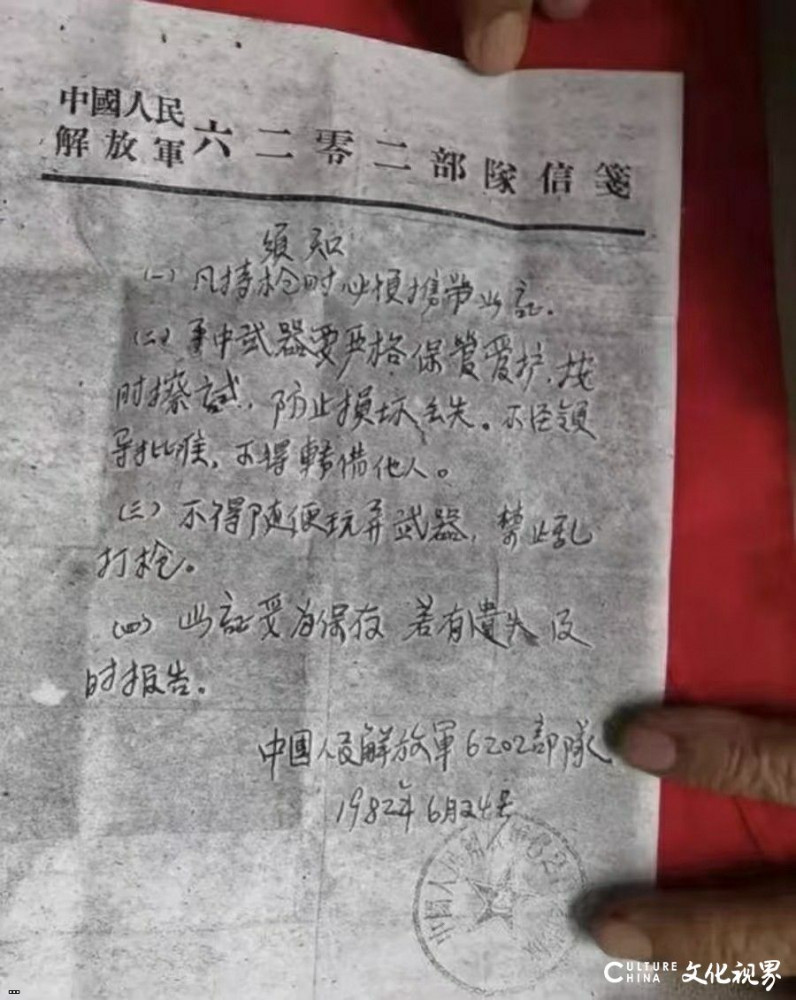 中國人民
解放軍 六二零二部隊信箋
須知
(一) 凡持枪时必損携带此証。
(二) 手中武器要严格保管爱护、按
时擦试，防止損坏丢失。不经領
导批准，不得轉借他人。
(三) 不得随便玩弄武器，禁止乱
打枪。
(四) 此証妥为保存 若有遺失 及
时报告。
中国人民解放軍6202部隊
1982年6月24号
CULTURE CHINA 文化视界